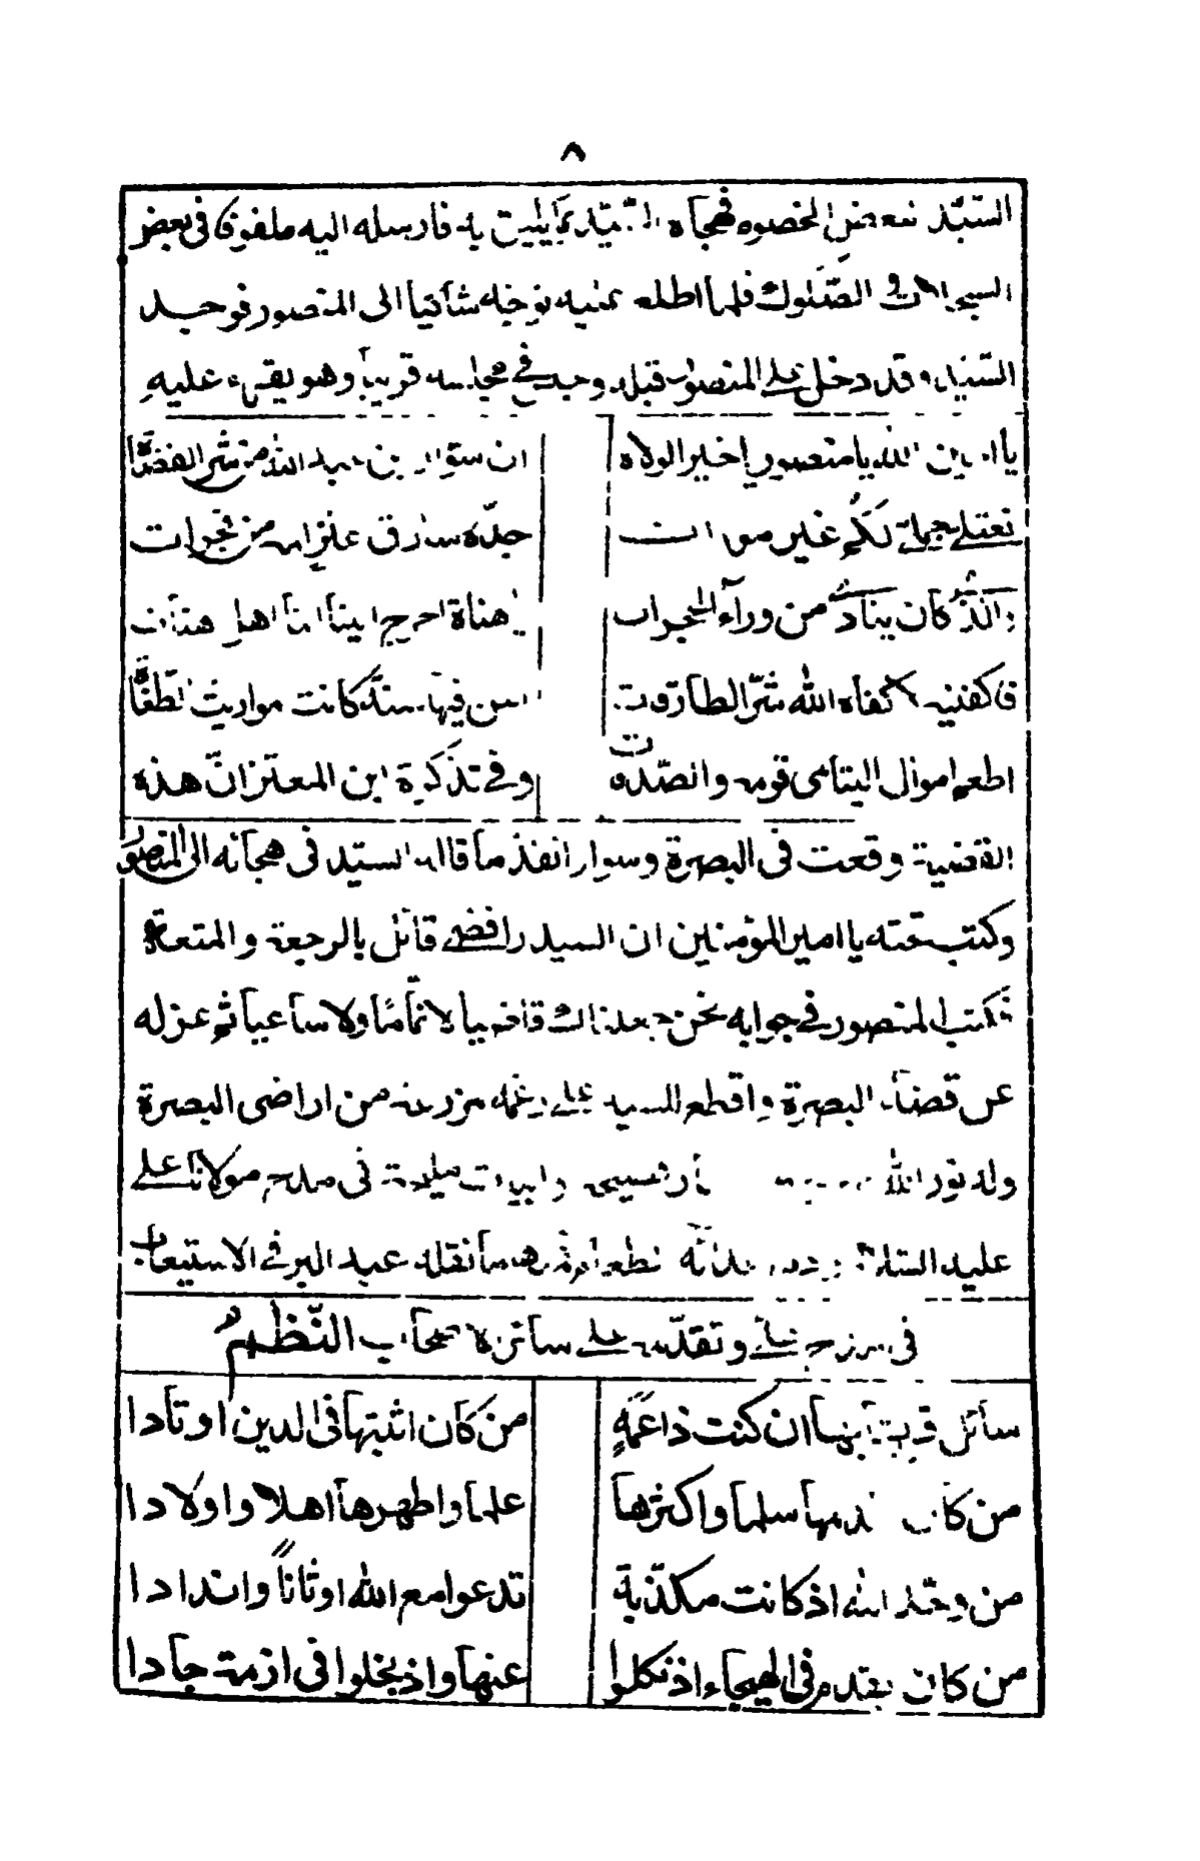 ٨
السيّد لبعض الخصوم فهجاه السيّد بما يليق به فارسله اليه ملفوفا فى بعض
السجلات و الصكوك فلما اطلع عليه توجّه شاكيا الى المنصور فوجد
السيّد وقد دخل على المنصور قبله وجد فى مجلسه قريباً وهو يقرء عليه
يا امين الله يا منصور يا خير الولاه ان سوّار بن عبد الله من شر القضاة
نعثلي جملي لكم غير موات جدّه سارق عنز من فجرات
والذى كان ينادى من ورآء الحجرات يا هناة اخرج الينا اننا اهل هنات
فاكفنيه لا كفاه الله شرّ الطارقات سن فينا سنة كانت مواريث الطغاة
اطعم اموال اليتامى قومه والصّدقات وفى تذكرة ابن المعتز انّ هذه
القضية وقعت فى البصرة وسوار انفذ ما قاله السيّد فى هجائه الى المنصور
وكتب تحته يا امير المؤمنين ان السيد رافضى قائل بالرجعة والمتعة
فكتب المنصور فى جوابه نحن جعلناك قاضيا لا نمّامًا ولا ساعيا ثم عزله
عن قضاء البصرة واقطع للسيد على رغمه مزرعة من اراضى البصرة
وله نور الله وابيات مليحة فى مدح مولانا على
عليه السلام نقله عبد البر فى الاستيعاب
فى على وتقدّمه على سائر الاصحاب النّظم
سائل قريشا بها ان كنت ذا عَمَهٍ من كان اثبتها فى الدين اوتادا
من كان اقدمها سلما واكثرها علما واطهرها اهلا واولادا
من وحّد الله اذ كانت مكذّبة تدعوا مع الله اوثاناً واندادا
من كان يقدم فى الهيجاء اذ نكلوا عنها واذ بخلوا فى ازمة جادا